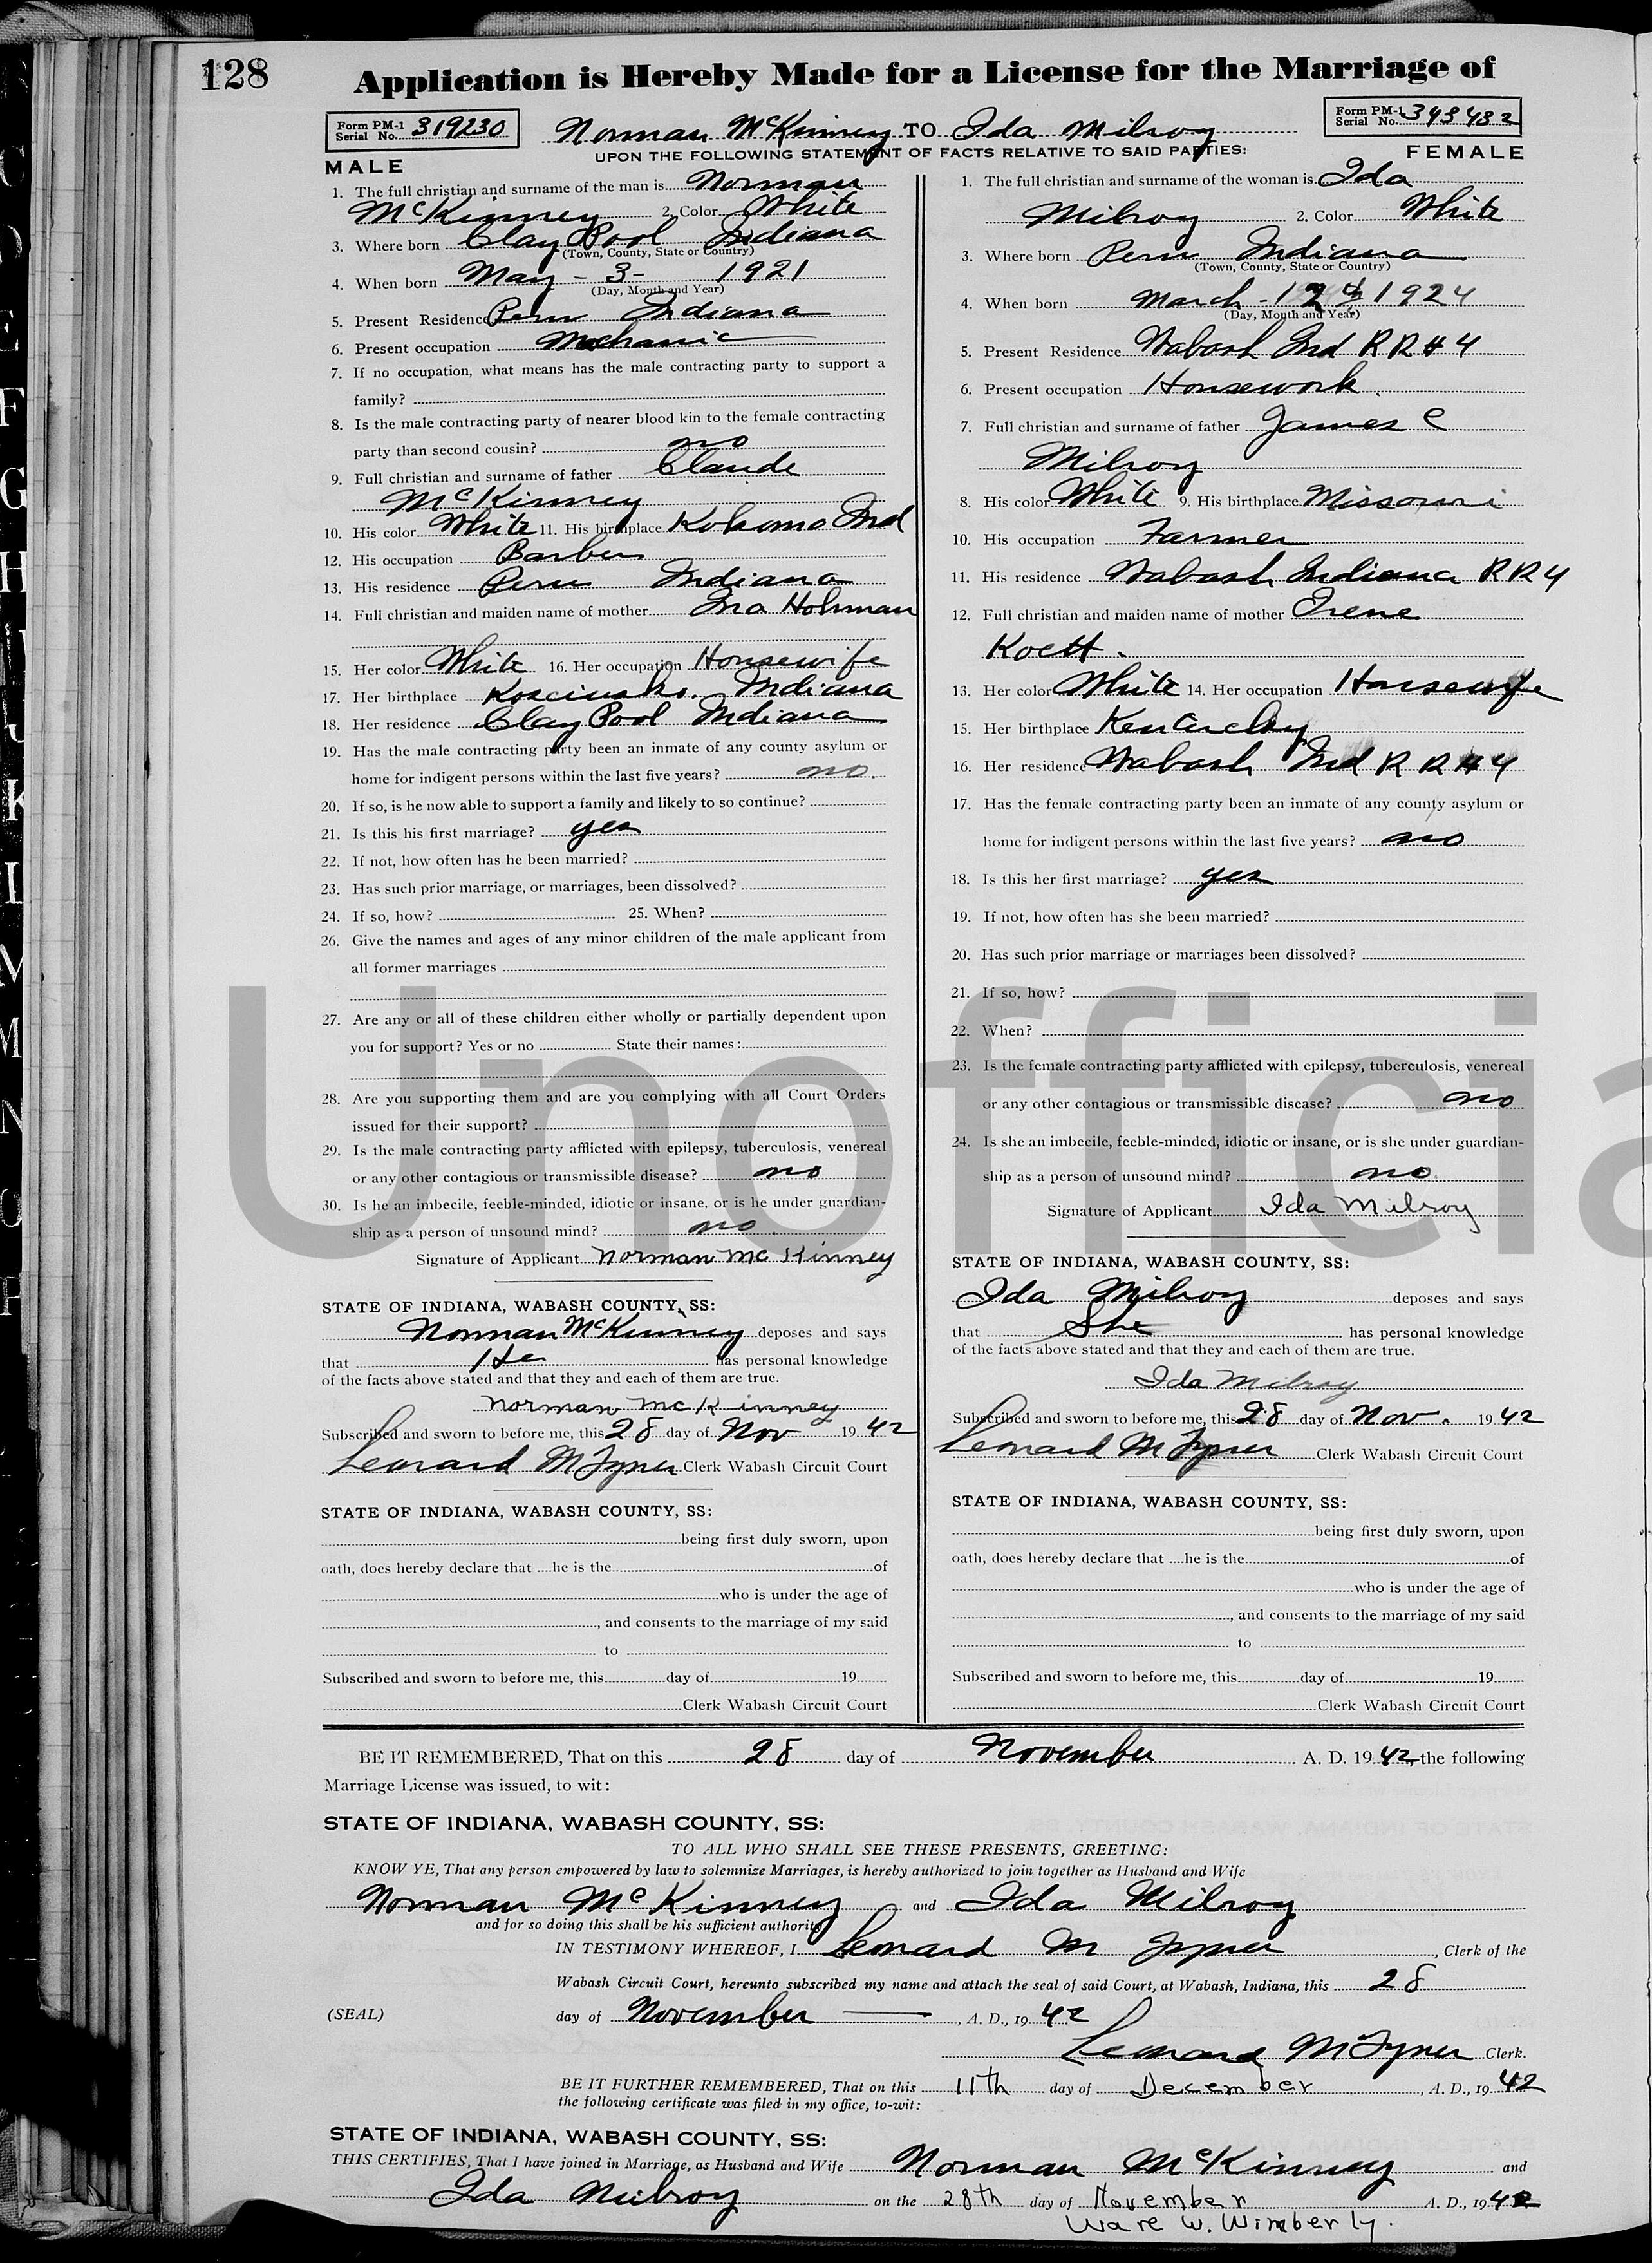 128
Application is Hereby Made for a License for the Marriage of
Form PM-1 Serial No. 319230
Norman McKinney TO Ida Milroy
Form PM-1 Serial No. 343432
UPON THE FOLLOWING STATEMENT OF FACTS RELATIVE TO SAID PARTIES:
MALE
1. The full christian and surname of the man is Norman
McKinney 2. Color White
3. Where born Clay Pool Indiana
(Town, County, State or Country)
4. When born May - 3 - 1921
(Day, Month and Year)
5. Present Residence Peru Indiana
6. Present occupation Mechanic
7. If no occupation, what means has the male contracting party to support a
family?
8. Is the male contracting party of nearer blood kin to the female contracting
party than second cousin? no
9. Full christian and surname of father Claude
McKinney
10. His color White 11. His birthplace Kokomo Ind
12. His occupation Barber
13. His residence Peru Indiana
14. Full christian and maiden name of mother Ina Hohman
15. Her color White 16. Her occupation Housewife
17. Her birthplace Kosciusko. Indiana
18. Her residence Clay Pool Indiana
19. Has the male contracting party been an inmate of any county asylum or
home for indigent persons within the last five years? no.
20. If so, is he now able to support a family and likely to so continue?
21. Is this his first marriage? yes
22. If not, how often has he been married?
23. Has such prior marriage, or marriages, been dissolved?
24. If so, how? 25. When?
26. Give the names and ages of any minor children of the male applicant from
all former marriages
27. Are any or all of these children either wholly or partially dependent upon
you for support? Yes or no State their names:
28. Are you supporting them and are you complying with all Court Orders
issued for their support?
29. Is the male contracting party afflicted with epilepsy, tuberculosis, venereal
or any other contagious or transmissible disease? no
30. Is he an imbecile, feeble-minded, idiotic or insane, or is he under guardian-
ship as a person of unsound mind? no
Signature of Applicant Norman McKinney
STATE OF INDIANA, WABASH COUNTY, SS:
Norman McKinney deposes and says
that He has personal knowledge
of the facts above stated and that they and each of them are true.
Norman McKinney
Subscribed and sworn to before me, this 28 day of Nov 1942
Leonard M Tyner Clerk Wabash Circuit Court
STATE OF INDIANA, WABASH COUNTY, SS:
being first duly sworn, upon
oath, does hereby declare that ....he is the of
who is under the age of
, and consents to the marriage of my said
to
Subscribed and sworn to before me, this day of 19
Clerk Wabash Circuit Court
FEMALE
1. The full christian and surname of the woman is Ida
Milroy 2. Color White
3. Where born Peru Indiana
(Town, County, State or Country)
4. When born March - 12th 1924
(Day, Month and Year)
5. Present Residence Wabash Ind R R # 4
6. Present occupation Housework.
7. Full christian and surname of father James C
Milroy
8. His color White 9. His birthplace Missouri
10. His occupation Farmer
11. His residence Wabash Indiana R R 4
12. Full christian and maiden name of mother Irene
Koett.
13. Her color White 14. Her occupation Housewife
15. Her birthplace Kentucky
16. Her residence Wabash Ind R R # 4
17. Has the female contracting party been an inmate of any county asylum or
home for indigent persons within the last five years? no
18. Is this her first marriage? yes
19. If not, how often has she been married?
20. Has such prior marriage or marriages been dissolved?
21. If so, how?
22. When?
23. Is the female contracting party afflicted with epilepsy, tuberculosis, venereal
or any other contagious or transmissible disease? no
24. Is she an imbecile, feeble-minded, idiotic or insane, or is she under guardian-
ship as a person of unsound mind? no
Signature of Applicant Ida Milroy
STATE OF INDIANA, WABASH COUNTY, SS:
Ida Milroy deposes and says
that She has personal knowledge
of the facts above stated and that they and each of them are true.
Ida Milroy
Subscribed and sworn to before me, this 28 day of Nov. 1942
Leonard M Tyner Clerk Wabash Circuit Court
STATE OF INDIANA, WABASH COUNTY, SS:
being first duly sworn, upon
oath, does hereby declare that ....he is the of
who is under the age of
, and consents to the marriage of my said
to
Subscribed and sworn to before me, this day of 19
Clerk Wabash Circuit Court
BE IT REMEMBERED, That on this 28 day of November A. D. 1942, the following
Marriage License was issued, to wit:
STATE OF INDIANA, WABASH COUNTY, SS:
TO ALL WHO SHALL SEE THESE PRESENTS, GREETING:
KNOW YE, That any person empowered by law to solemnize Marriages, is hereby authorized to join together as Husband and Wife
Norman McKinney and Ida Milroy
and for so doing this shall be his sufficient authority
IN TESTIMONY WHEREOF, I Leonard M Tyner, Clerk of the
Wabash Circuit Court, hereunto subscribed my name and attach the seal of said Court, at Wabash, Indiana, this 28
(SEAL) day of November, A. D., 1942
Leonard M Tyner Clerk.
BE IT FURTHER REMEMBERED, That on this 11th day of December, A. D., 1942
the following certificate was filed in my office, to-wit:
STATE OF INDIANA, WABASH COUNTY, SS:
THIS CERTIFIES, That I have joined in Marriage, as Husband and Wife Norman McKinney and
Ida Milroy on the 28th day of November A. D., 1942
Ware W. Wimberly.
Unofficia
E
F
G
H
I
J
K
L
M
N
O
P